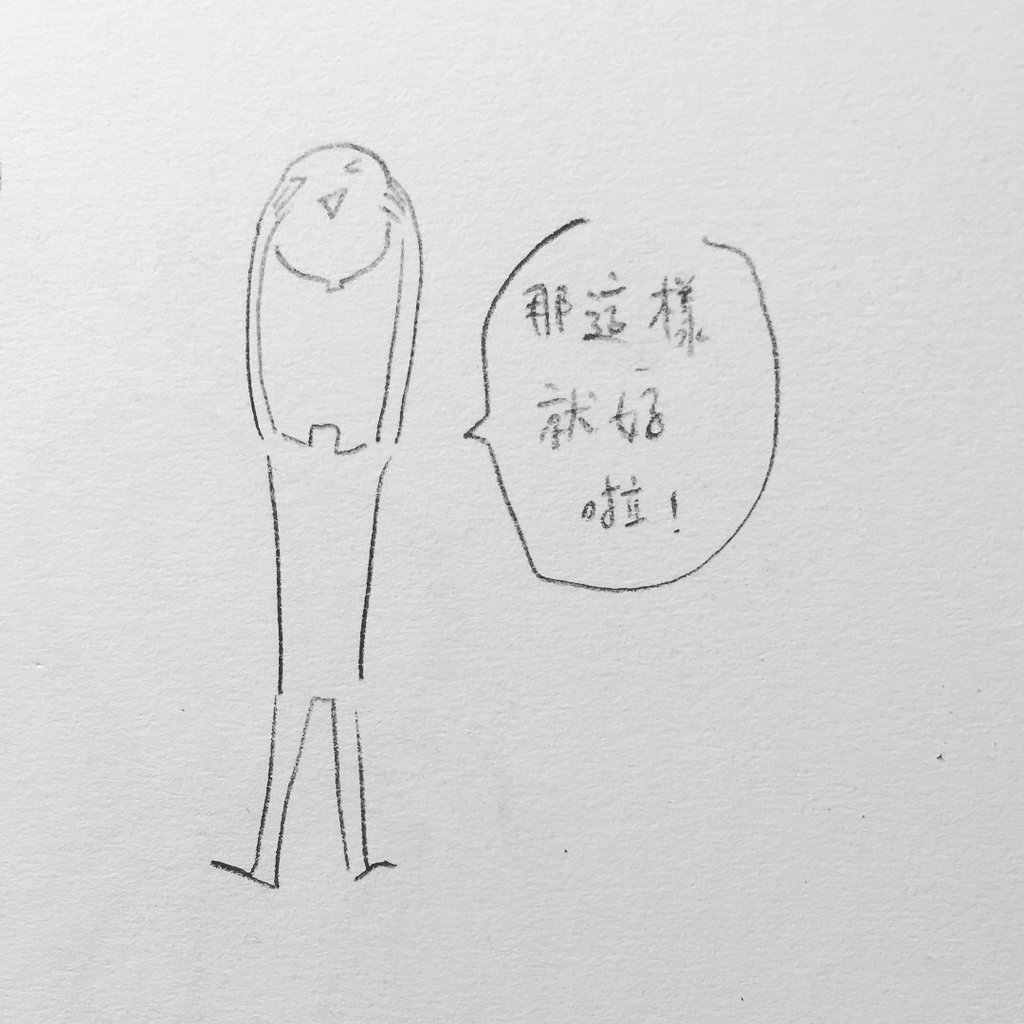 那這樣
就好
啦!